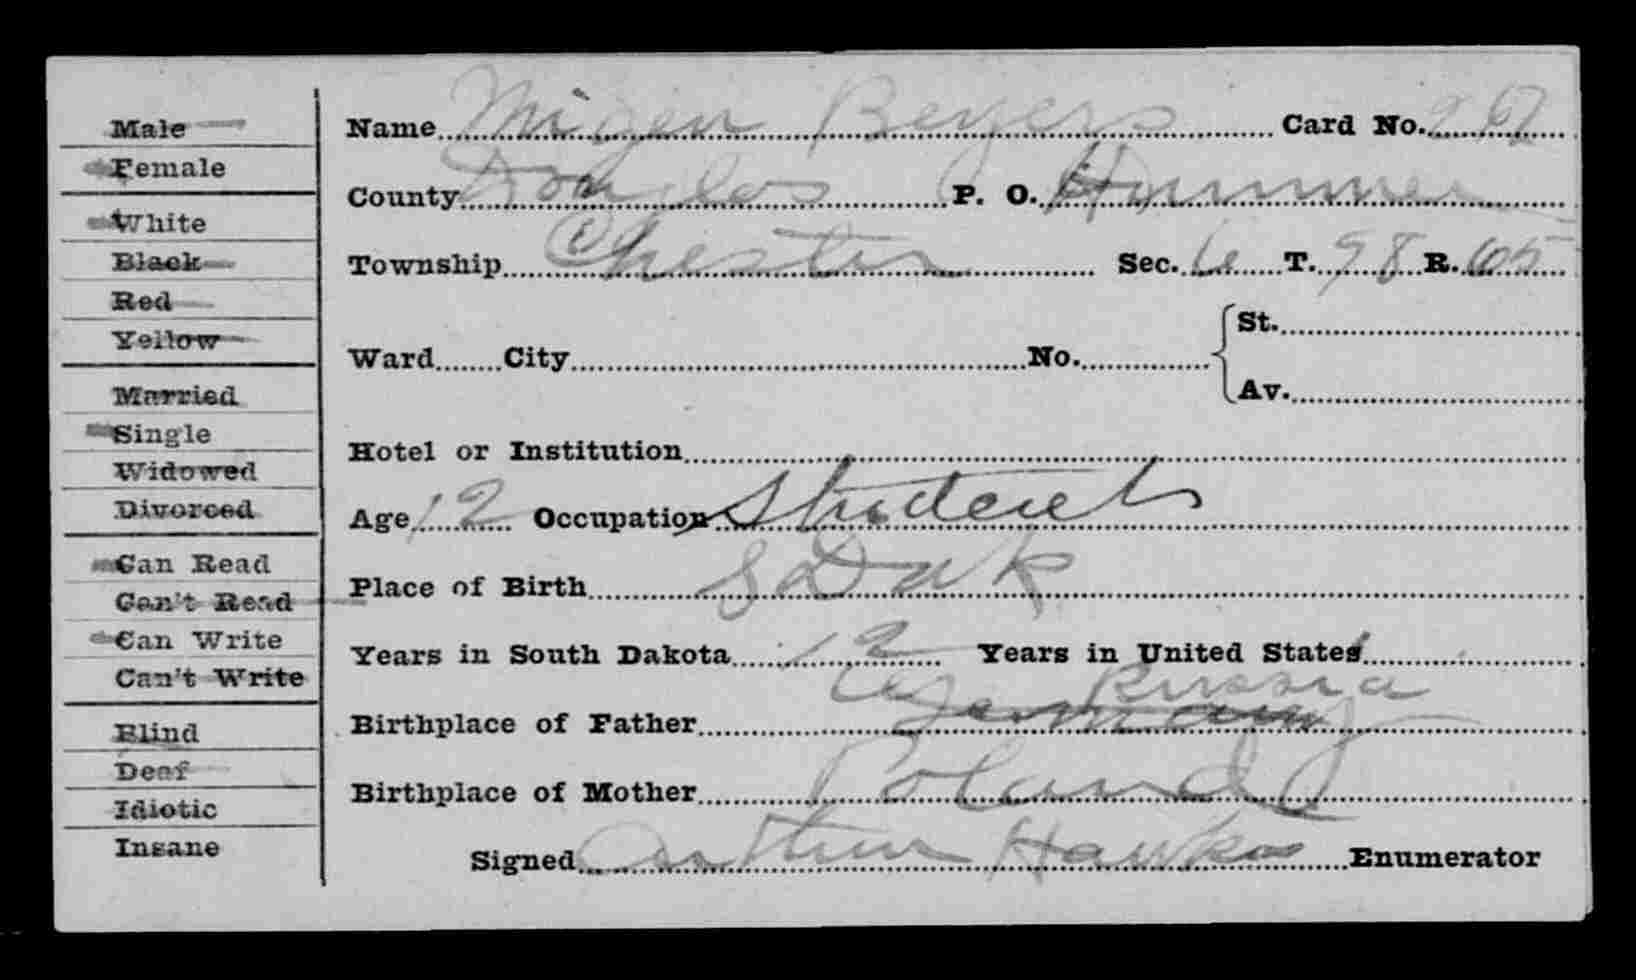 Male
Female
White
Black
Red
Yellow
Married
Single
Widowed
Divorced
Can Read
Can't Read
Can Write
Can't Write
Blind
Deaf
Idiotic
Insane
Name Beyers Card No.
County Douglas P. O.
Township Chester Sec. 6 T. 98 R. 65
Ward City No. St.
Av.
Hotel or Institution
Age 12 Occupation Student
Place of Birth S Dak
Years in South Dakota 12 Years in United States
Russia
Birthplace of Father Germany
Birthplace of Mother Poland
Signed Arthur Hawks Enumerator